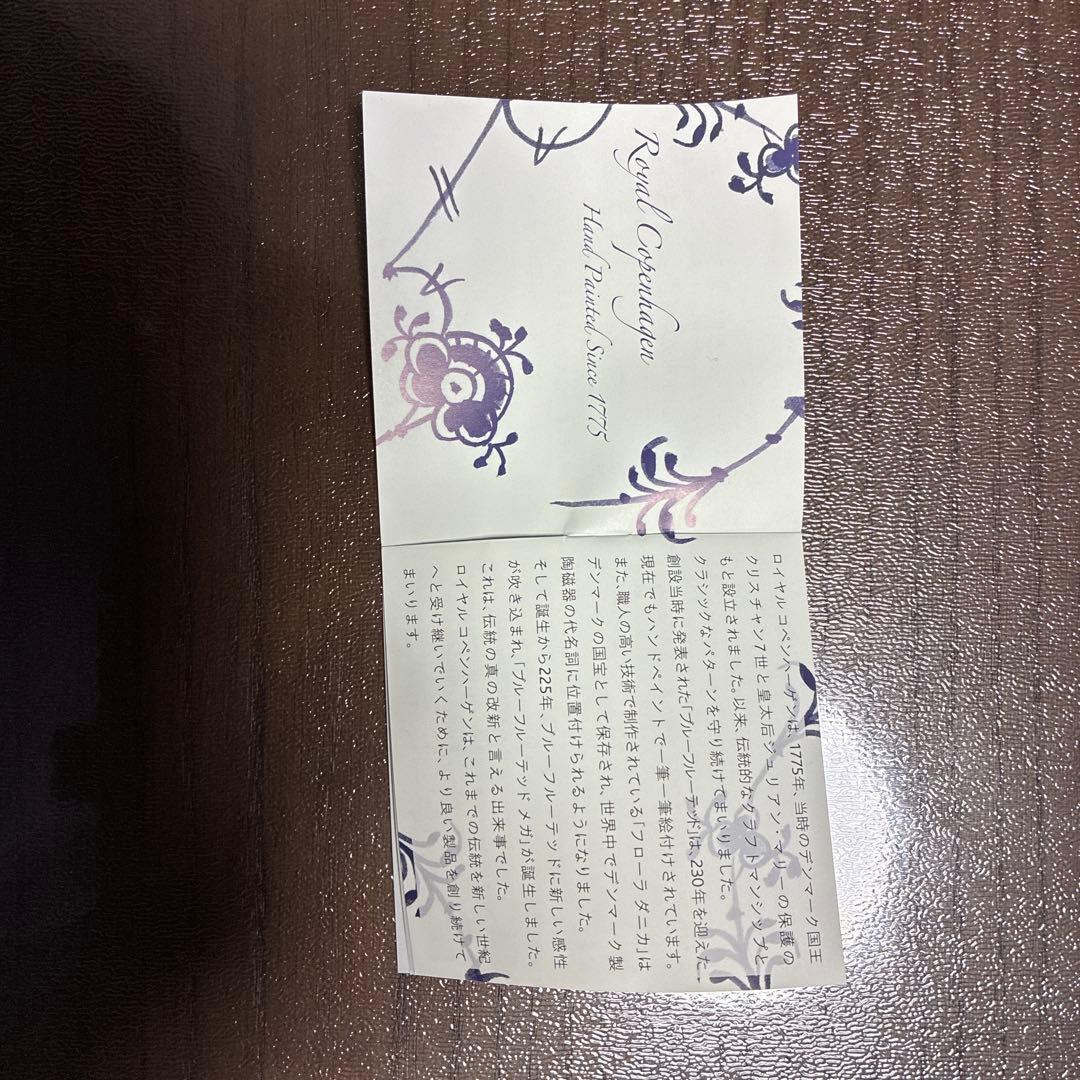 Royal Copenhagen
Hand Painted Since 1775
ロイヤル コペンハーゲンは、1775年、当時のデンマーク国王
クリスチャン7世と皇太后ジュリアン・マリーの保護の
もと設立されました。以来、伝統的なクラフトマンシップと
クラシックなパターンを守り続けてまいりました。
創設当時に発表された「ブルーフルーテッド」は、230年を迎えた
現在でもハンドペイントで一筆一筆絵付けされています。
また、職人の高い技術で制作されている「フローラ ダニカ」は
デンマークの国宝として保存され、世界中でデンマーク製
陶磁器の代名詞に位置付けられるようになりました。
そして誕生から225年、ブルーフルーテッドに新しい感性
が吹き込まれ、「ブルーフルーテッド メガ」が誕生しました。
これは、伝統の真の改新と言える出来事でした。
ロイヤル コペンハーゲンは、これまでの伝統を新しい世紀
へと受け継いでいくために、より良い製品を創り続けて
まいります。